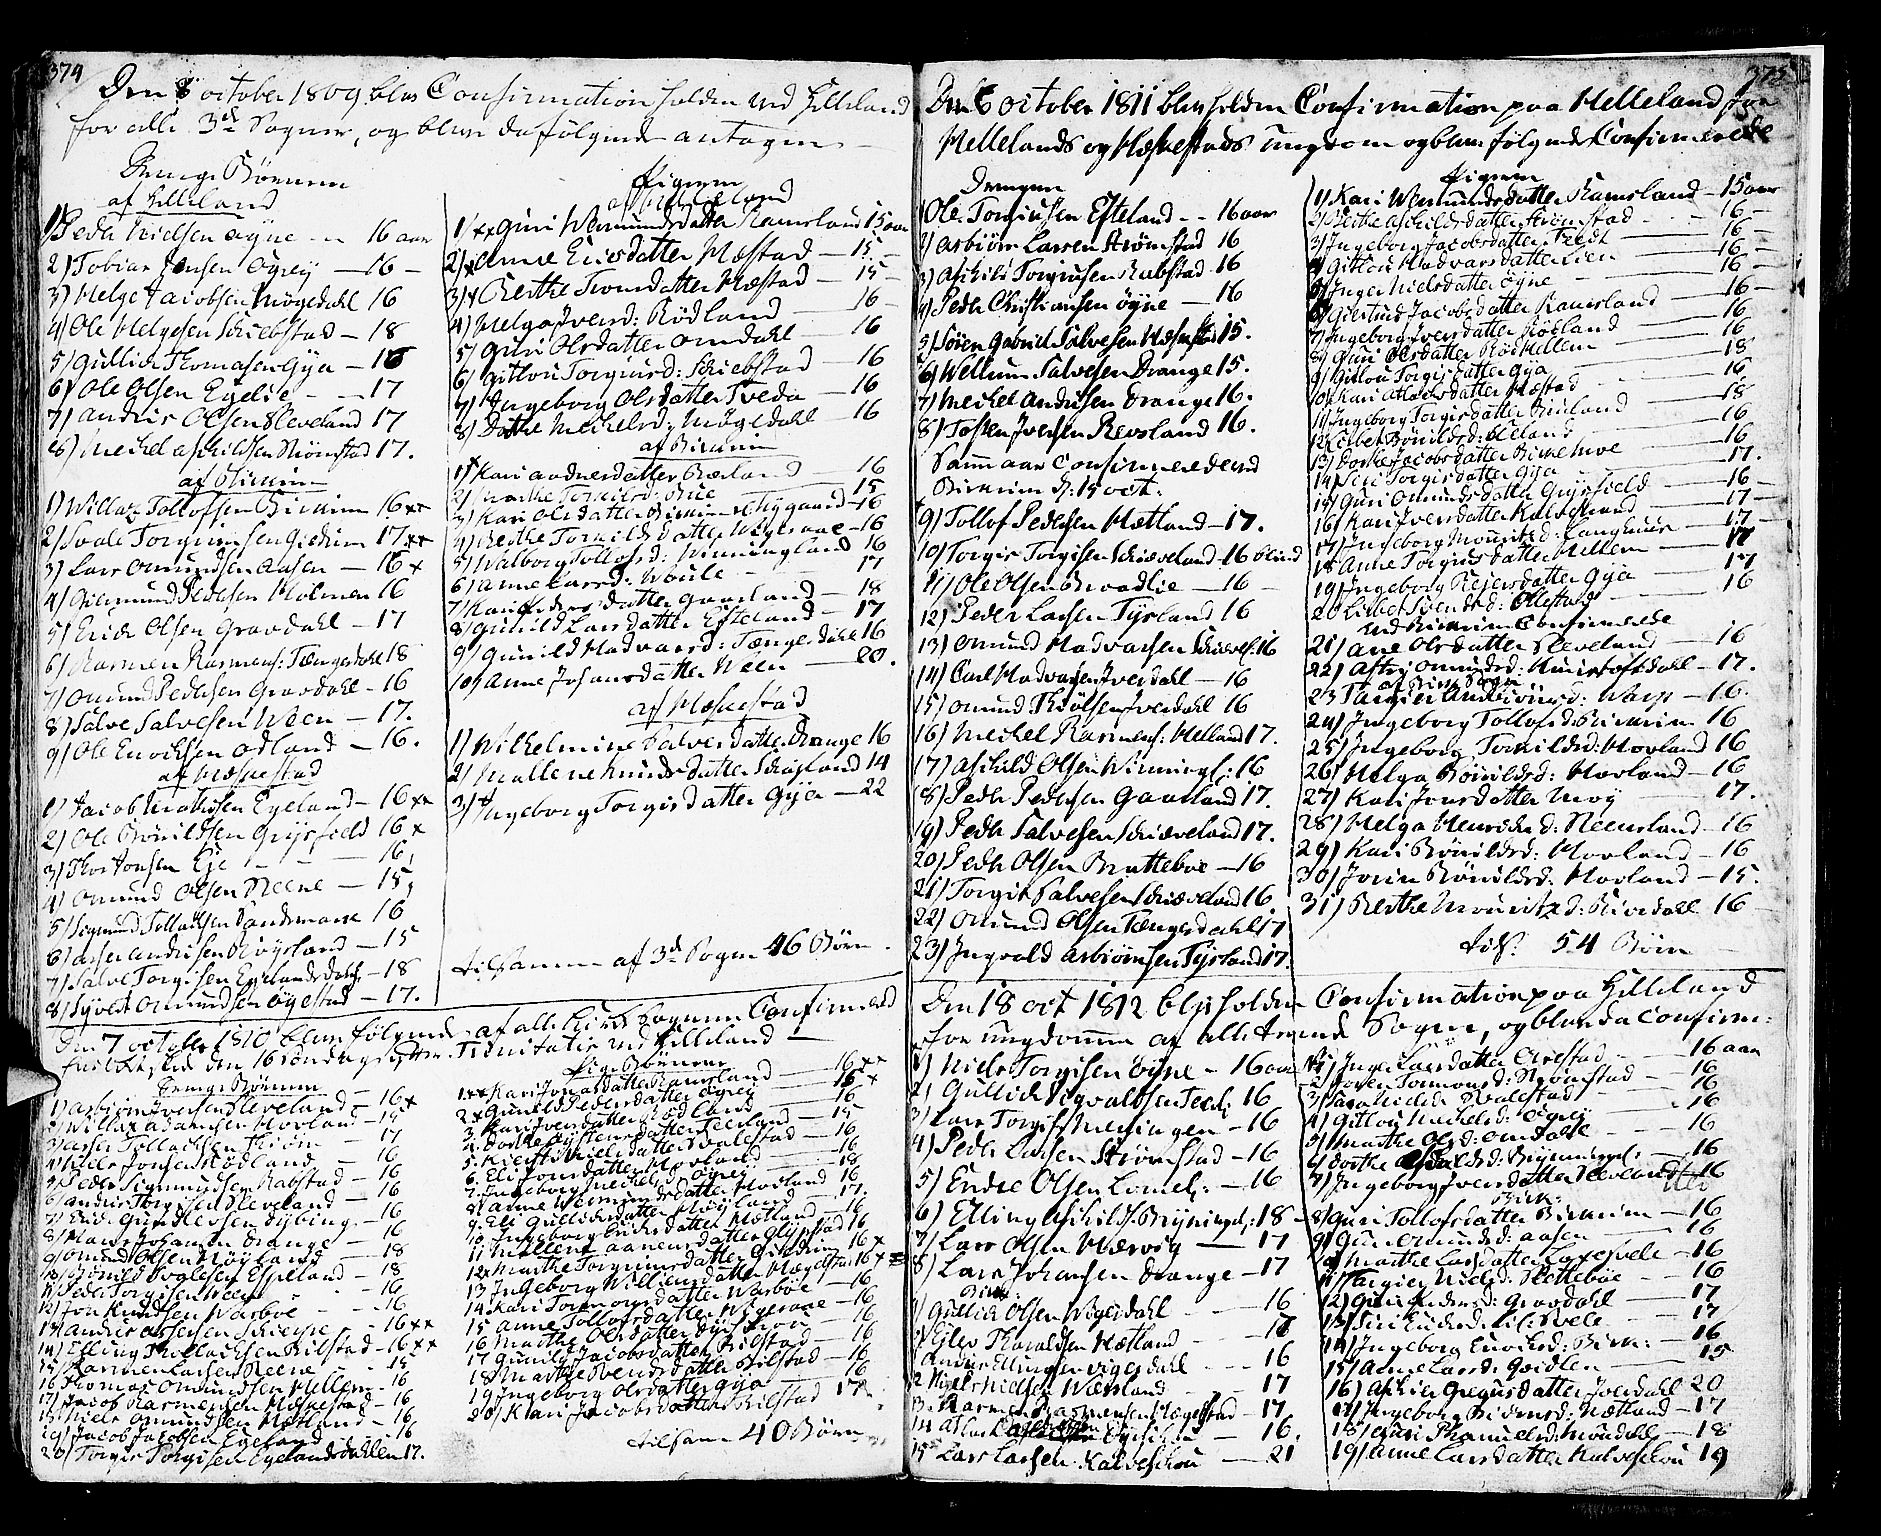 374
Den 8 october 1809 blev Confirmation holden ved Helleland
for alle 3de Sogner, og bleve da følgende antagne
Drenge Børnene
af Helleland
1) Peder Nielsen øyne 16 aar
2) Tobias Jonsen Øgrey 16
3) Helge Jacobsen Møgedahl 16
4) Ole Helgesen Schiebstad 18
5) Gullich Thomasen Gya 16
6) Ole Olsen Egelie 17
7) Andreis Olsen Sleveland 17
8) Michel Aschildsen Strømstad 17.
af Birkrim
1) Willaz Tollofsen Birkrim 16 xx
2) Svale Torgrimsen Giedrim 17 xx
3) Lars Omundsen Aasen 16 x
4) Giermund Pedersen Holmen 16
5) Erich Olsen Gravdahl 17
6) Rasmen Rasmens: Tængesdahl 18
7) Omund Pedersen Gravdahl 16
8) Salve Salvesen Ween 17.
9) Ole Enochsen Odland 16.
af Hæskestad
1) Jacob Mathisen Egeland 16 xx
2) Ole Bønildsen Grøsfield 16 x
3) Thor Jonsen Eje 16
4) Omund Olsen Steene 15
5) Sigmund Tollachsen Sandsmark 16
6) Asser Andersen Røysland 15
7) Salve Torgisen Egelandsdahl 18
8) Syvert Omundsen Øgestad 17.
Pigerne
af Helleland
1) xx Guri Wermundsdatter Ramsland 15 aar
2) x Anne Ericsdatter Mæstad 15
3) x Berthe Tronsdatter Mæstad 15
4) Helga Iversd: Rødland 16
5) Guri Olsdatter Omdahl 16
6) Gitlou Torgiusd: Schiebstad 16
7) Ingeborg Olsdatter Tveda 16
8) Dorthe Michelsd: Møgedahl 16
af Birkrim
1) Kari Andersdatter Bærland 16
2) Marthe Tornilsd: Bue 15
3) Kari Olsdatter Birkrim Nygaard 16
4) Berthe Tornilsdatter Wigesaae 16
5) Walborg Tollofsd: Winningland 16
6) Anne Larsd: Woule 17
7) Kari Pedersdatter Gaarland 18
8) Gunild Larsdatter Efteland 17
9) Gunild Hadvarsd: Tængesdahl 16
10) Anne Johansdatter Ween 20.
af Hæskestad
1) Wilhelmine Salvesdatter Drange 16
2) Mallene Knudsdatter Schogland 14
3) Ingeborg Torgisdatter Gya 22
tilsamen af 3de Sogne 46 Børn
Den 7 october 1810 bleve følgende af alle trende Sogners Confirmered
Drenge Børnene
1) Asbiørn Iversen Sleveland 16 x
2) Willaz Adamsen Hovland 15
3) Asser Tollachsen Thiørn 17
4) Niels Jonsen Rødland 16
5) Peder Sigmundsen Rabstad 16
6) Anders Torgisen Sleveland 16
7) Erich Gundersen Dybing 16
8) Hans Johansen Drange 16
9) Omund Olsen Høyland 18
10) Bønild Svalesen Espeland 18
11) Peder Torgisen Ween 16
12) Jon Knudsen Warboe 16
13) Andreis Assersen Schieipe 16 xx
14) Elling Thollachsen Bilstad 16 xx
15) Rasmen Larsen Steene 15
16) Thomas Omundsen Hellem 16
17) Jacob Rasmensen Hæskestad 16
18) Niels Omundsen Hætland 16
19) Jacob Jacobsen Egeland 16
20) Torgir Torgisen Egelandsdallen 17.
Pige Børnene
1 xx Kari Jonasdatter Ramsland 16 xx
2 x Gunild Pedersdatter Øgrey 16 x
3. Kari Iversdatter Rødland 16
4. Dorthe Øystensdatter Teeland 15
5. Kiersti Nielsdatter Svalestad 16
6. Eli Jonsdatter Hovland 16
7. Ingeborg Michelsd: Øgrey 18
8. Anne Wermundsdatter Hovland 16
9. Eli Gullichsdatter Høyland 17.
10. Ingeborg Erichsdatter Hætland 16
11 Mallene Aanensdatter Glypstad 16
12 x Marthe Torgrimsdatter Giedrim 16 x
13 Ingeborg Williemsdatter Hægelstad 16 x
14 Kari Tormonsdatter Warboe 16
15 Anne Tollofsdatter Wigesaae 16
16 Marthe Olsdatter Øyschou 16
17 Gunild Jacobsdatter Bilstad 16
18 Marthe Svendsdatter Bilstad 16
19 Ingeborg Olsdatter Gya 16
20) Kari Jacobsdatter Bilstad 17
tilsamen 40 Børn
375
Den 6 october 1811 blev holden Confirmation paa Helleland for
Hellelands og Hæskestads ungdom og bleve følgende Confirmerede
Drengene
1 Ole Torgiusen Efteland 16 aar
2) Asbiørn Larsen Strømstad 16
3) Aschild Torgiusen Rabstad 16
4) Peder Christiansen øyne 16
5) Søren Gabriel Salvesen Hæskestad 15.
6) Wellum Salvesen Drange 15.
7) Michel Andersen Drange 16.
8) Tosten Iversen Revsland 16.
Samme aar Confirmerede ved
Birkrim d: 15 oct:
9) Tollof Pedersen Hætland 17.
10) Torgir Torgisen Schieveland 16 blind
11) Ole Olsen Braadlie 16
12) Peder Larsen Tysland 16
13) Omund Hadvarsen Schievel: 16
14) Carl Hadvarsen Iversdahl 16
15) Omund Thiølsen Iversdahl 16
16) Michel Rasmens: Helland 17.
17) Aschild Olsen Winningl: 16
18) Peder Pedersen Gaarland 17.
19) Peder Salvesen Schieveland 17.
20) Peder Olsen Bratteboe 16
21) Torgir Salvesen Schieveland 16
22) Omund Olsen Tængesdahl 17
23) Ingvald Asbiørnsen Tysland 17.
Pigerne
1) Kari Wermundsdatter Ramsland 15 aar
2) Berthe Aschildsdatter Strømstad 16
3) Ingeborg Jacobsdatter Tvedt 16
4) Gitlou Hadvarsdatter Lien 16
5) Inger Nielsdatter øyne 16
6) Giertrud Jacobsdatter Ramsland 16
7) Ingeborg Iversdatter Rødland 16
8) Guri Olsdatter Rødhellem 16
9) Gitlou Torgisdatter Gya 18
10) Kari Atlaksdatter Mæstad 16
11) Ingeborg Torgisdatter Birkeland 18
12) Lisbet Bønildsd: Ueland 16
13) Dorthe Jacobsdatter Birkemoe 16
14) Siri Torgisdatter Gya 17.
15) Guri Omundsdatter Grøsfield 16
16) Kari Iversdatter Kalvestrand 17
17) Ingeborg Mouritzd: Langhuus 17
18) Anne Torgiusdatter Hellem 17
19) Ingeborg Reiersdatter Gya 17
20 Lisbet Svendsd: Ollestad 16
ved Birkrim Confirmerede
21) Ane Olsdatter Sleveland 16
22) Astri Omundsd: Kuistoftdahl 17.
af Birk: Sogn
23 Targier Andersd: Warp 16.
24) Ingeborg Tollofsd: Birkrim 16
25) Ingeborg Tornildsd: Hovland 16
26) Helga Bønildsd: Hovland 16
27) Kari Jonsdatter Moy 17.
28) Helga Henrichsd: Steensland 16
29) Kari Bønildsd: Hovland 16
30) Joren Bønildsd: Hovland 15.
31) Berthe Mouritzd: Birkedahl 16
tils: 54 Børn
Den 18 oct 1812 blef holden Confirmation paa Helleland
for ungdommen af alle trende Sogne, og bleve da Confirm:
1) Niels Torgisen øyne 16 aar
2) Gullich Sigvaldsen Teed: 16
3) Lars Torgisen Mesingen 16
4) Peder Larsen Strømstad 16
5) Endre Olsen Lomel: 16
6) Elling Aschilds: Bryningsl: 18
7) Lars Olsen Hærvig 17
8) Lars Johansen Drange 17
Birk:
1) Gullich Olsen Wigesdahl 16
Ejlev Tharaldsen Hætland 18
Anders Ellingsen Vigesdahl 16
12 Niels Nielsen Wærsland 17
13. Rasmen Rasmensen Hægelstad 17
14 Atlac Øyschou 16.
15 Lars Larsen Kalveschou 21
1) Inger Larsdatter Arestad 16 aar
2) Joren Tormonsd: Strømstad 16
3) Sara Nielsd: Svalestad 16
4) Gitlou Michelsd: Øgrey 16
5) Marthe Olsd: Omdahl 16
6) Dorthe Osvaldsd: Bryningsl: 16
7) Ingeborg Iversdatter Sleveland 16
Birk:
8) Guri Tollofsdatter Birkrim 16
9) Guri Omundsd: Aasen 16
10) Marthe Larsdatter Laxesvele 16
11) Targier Nielsd: Slettebøe 16
12) Guri Endresd: Gravdahl 17
13) Siri Erichsd: Lil: Svele 17
14) Ingeborg Enochsd: Birk: 16
15) Anne Larsd: Goidlen 15
16) Aschier Gregersdatter Iversdahl 20
17) Ingeborg Pedersd: Hætland 17
18) Guri Samuelsd: Mondahl 18
19) Anne Larsdatter Kalveschou 19